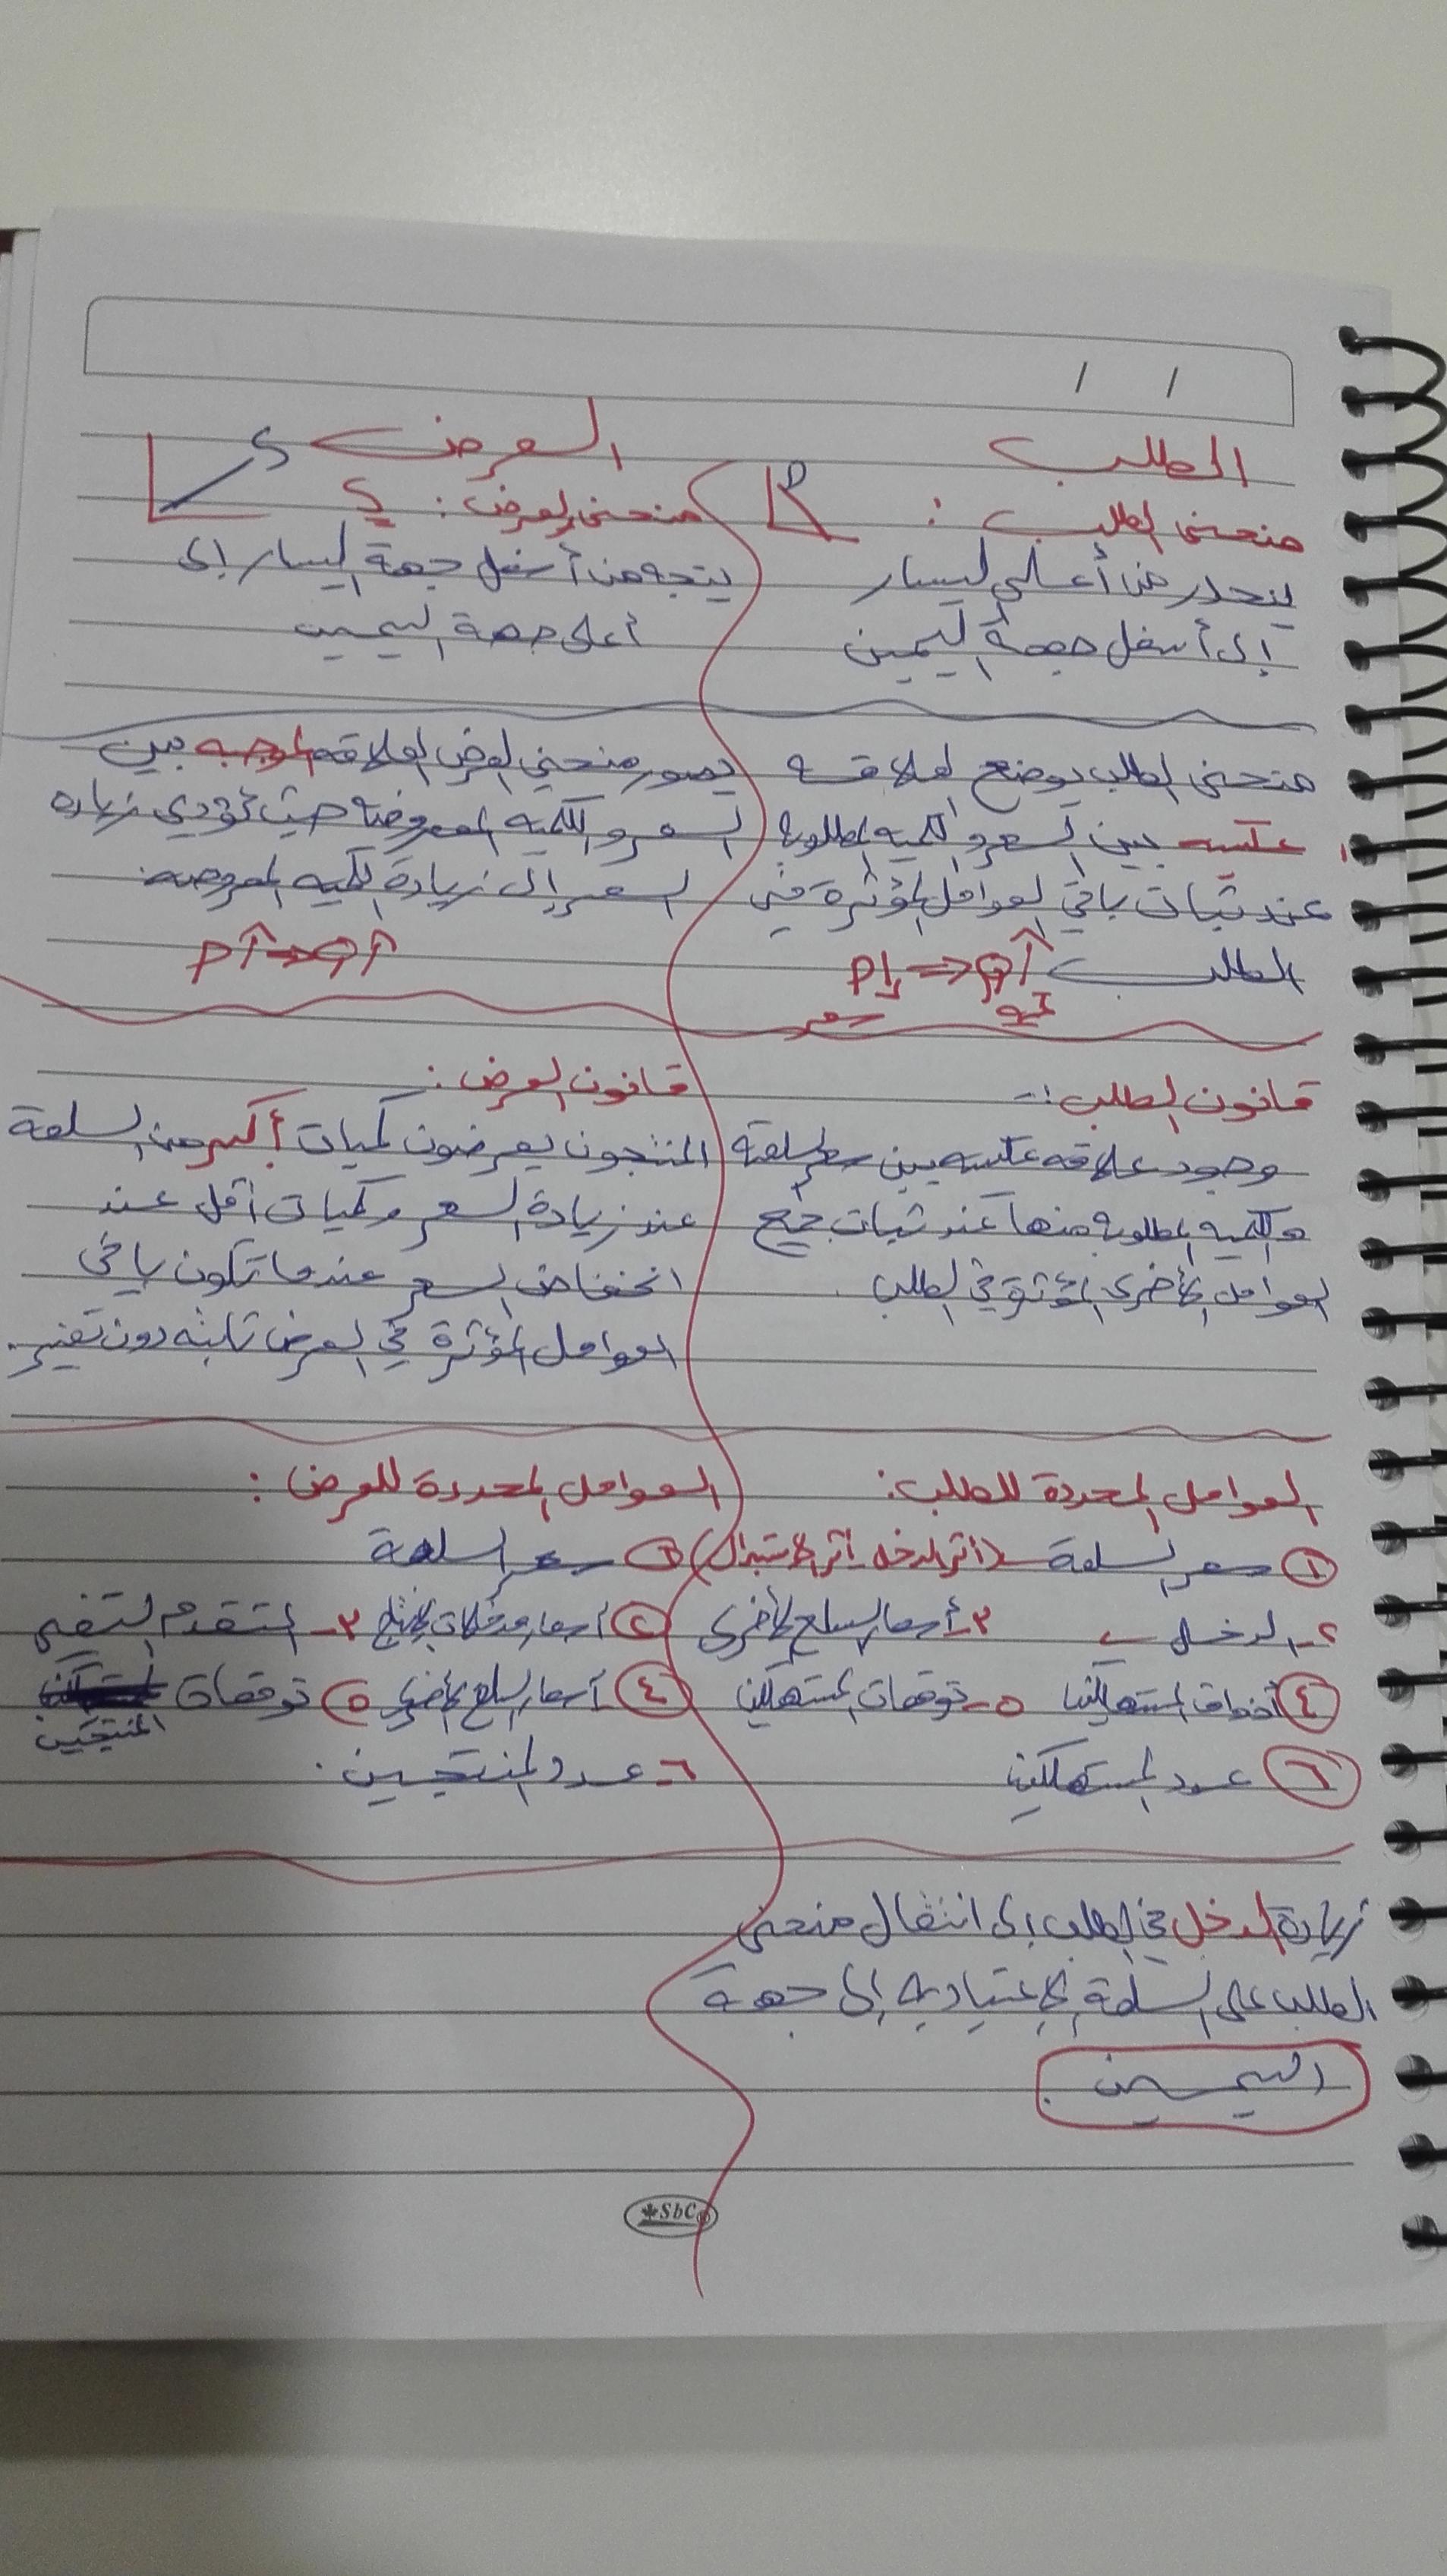 الطلب
منحنى الطلب :
D
ينحدر من أعلى اليسار
إلى أسفل جهة اليمين
منحنى الطلب يوضح العلاقة
عكسيه بين السعر والكميه المطلوبة
عند ثبات باقي العوامل المؤثرة في
الطلب
P↓ ⇒ Q↑
سعر
قانون الطلب :-
وجود علاقه عكسيه بين سعر السلعة
والكميه المطلوبه منها عند ثبات جميع
العوامل الأخرى المؤثرة في الطلب
العوامل المحددة للطلب:
١ سعر السلعة (أثر الدخل - أثر الاستبدال)
٢- الدخل ٣- أسعار السلع الأخرى
٤ أذواق المستهلكين ٥- توقعات المستهلكين
٦ عدد المستهلكين
زيادة الدخل في الطلب إلى انتقال منحنى
الطلب على السلعة الإعتياديه إلى جهة
اليمين
العرض
S
منحنى العرض : S
يتجه من أسفل جهة اليسار إلى
أعلى جهة اليمين
يصور منحنى العرض العلاقه الموجبه بين
السعر والكميه المعروضه حيث تؤدي زياده
السعر إلى زيادة الكميه المعروضه
P↑ ⇒ Q↑
قانون العرض :
المنتجون يعرضون كميات أكبر من السلعة
عند زيادة السعر وكميات أقل عند
انخفاض السعر عندما تكون باقي
العوامل المؤثرة في العرض ثابته دون تغيير.
العوامل المحددة للعرض :
١ سعر السلعة
٢ أسعار مدخلات الإنتاج ٣- التقدم التقني
٤ أسعار السلع الأخرى ٥ توقعات
المنتجين
٦- عدد المنتجين .
SbC